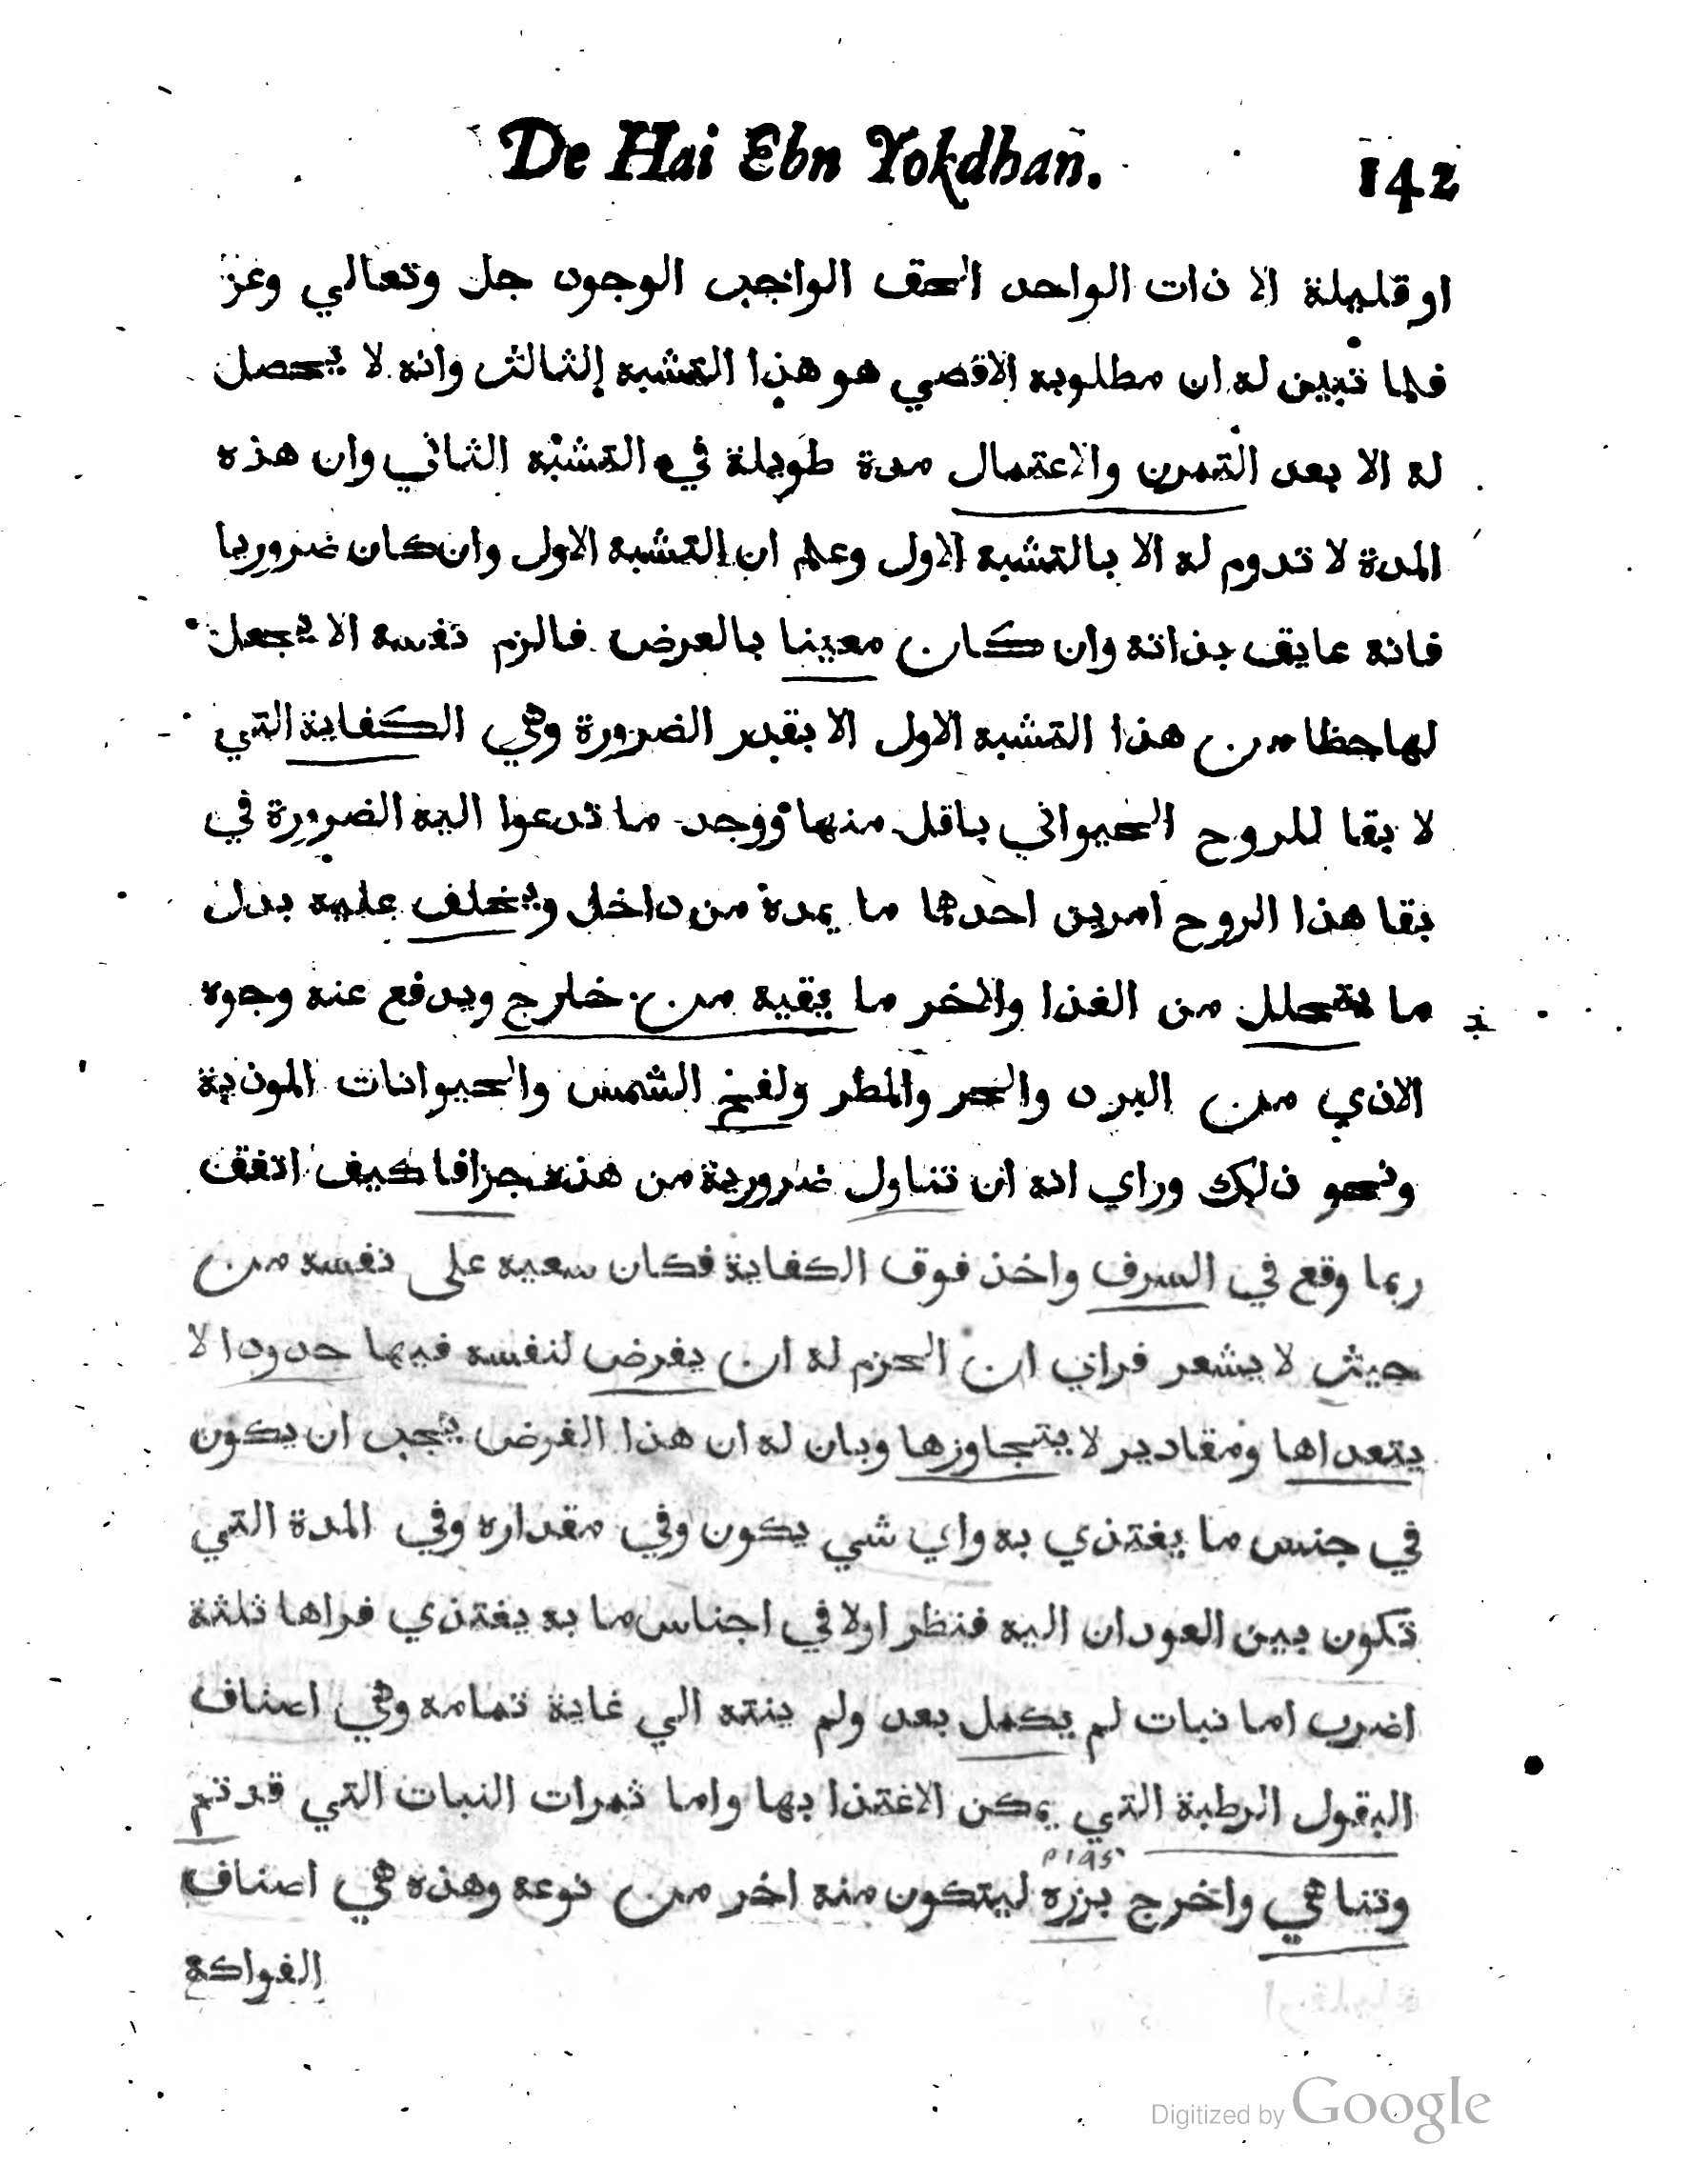 De Hai Ebn Yokdhan. 142
او قليلة الا ذات الواحد الحق الواجب الوجود جل وتعالي وعز
فلما تبين له ان مطلوبه الاقصي هو هذا التشبه الثالث وانه لا يحصل
له الا بعد التمرن والاعتمال مدة طويلة في التشبه الثاني وان هذه
المدة لا تدوم له الا بالتشبه الاول وعلم ان التشبه الاول وان كان ضروريا
فانه عايق بذاته وان كان معينا بالعرض فالزم نفسه الا يجعل
لها حظا من هذا التشبه الاول الا بقدر الضرورة وهي الكفاية التي
لا بقا للروح الحيواني باقل منها ووجد ما تدعوا اليه الضرورة في
بقا هذا الروح امرين احدهما ما يمدة من داخل ويخلف عليه بدل
ما يتحلل من الغذا والاخر ما يقيه من خارج ويدفع عنه وجوه
الاذي من البرد والحر والمطر ولفح الشمس والحيوانات الموذية
ونحو ذلك وراي انه ان تناول ضرورية من هذه جزافا كيف اتفق
ربما وقع في السرف واخذ فوق الكفاية فكان سعيه على نفسه من
حيث لا يشعر فراي ان الحزم له ان يفرض لنفسه فيها حدودا لا
يتعداها ومقادير لا يتجاوزها وبان له ان هذا الفرض يجب ان يكون
في جنس ما يغتذي به واي شي يكون وفي مقداره وفي المدة التي
تكون بين العودان اليه فنظر اولا في اجناس ما به يغتذي فراها ثلثة
اضرب اما نبات لم يكمل بعد ولم ينته الي غاية تمامه وهي اصناف
البقول الرطبة التي يمكن الاغتذا بها واما ثمرات النبات التي قد تم
وتناهي واخرج بزره ليتكون منه اخر من نوعه وهذه هي اصناف
الفواكه
Digitized by Google